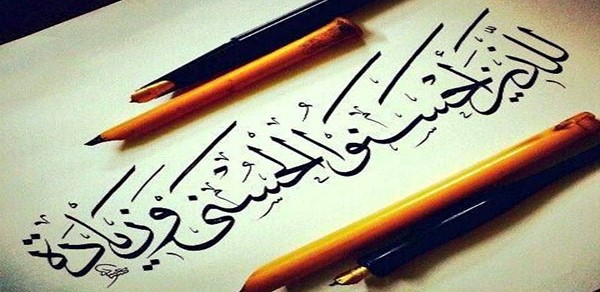 للَّذِينَ أَحْسَنُوا الْحُسْنَى وَزِيَادَةٌ